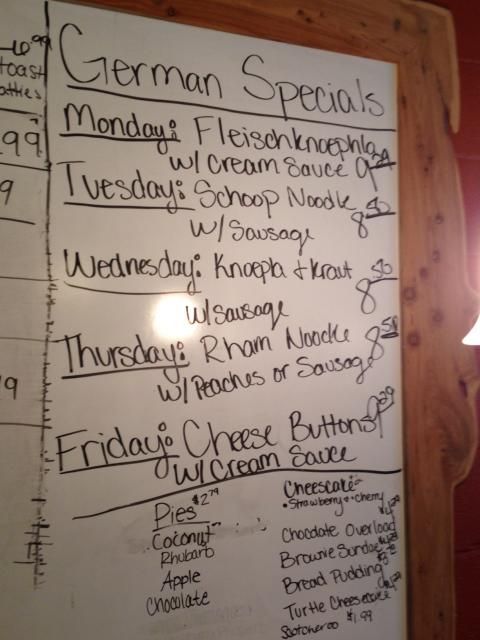 toast
99
9
19
German Specials
Monday: Fleischknoephla
w/ Cream Sauce
Tuesday: Schoop Noodle
w/ Sausage 8.50
Wednesday: Knoepla + Kraut
w/ Sausage 8.50
Thursday: Rham Noodle 8.50
w/ Peaches or Sausage
Friday: Cheese Buttons
w/ Cream Sauce
Pies $2.79
Coconut
Rhubarb
Apple
Chocolate
Cheescake
• Strawberry • Cherry
Chocolate Overload
Brownie Sundae
Bread Pudding
Turtle Cheesecake
Scotcheroo $1.99